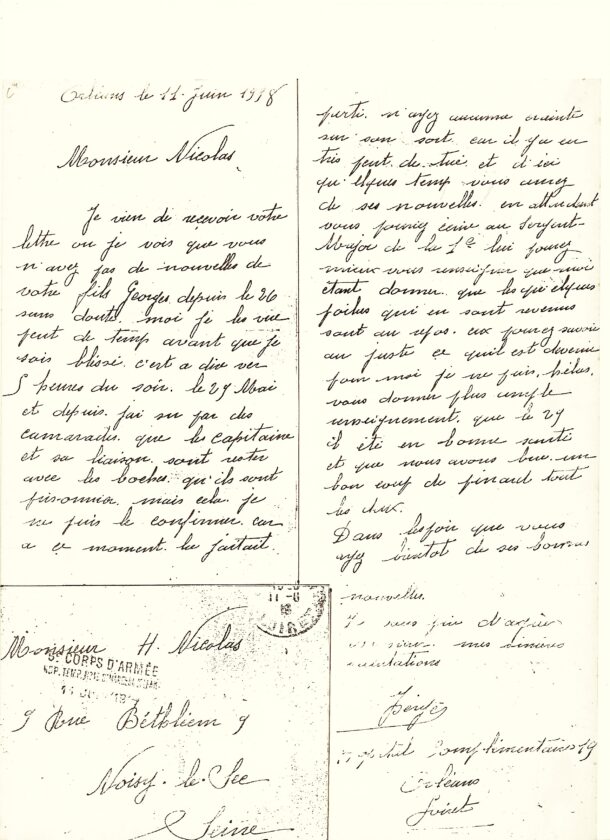 Orléans le 11 Juin 1918
Monsieur Nicolas
Je vien de reçevoir votre
lettre ou je vois que vous
n'avez pas de nouvelles de
votre fils Georges, depuis le 26
sans doute, moi je les vue
peut de temp avant que je
sois blissé. c'est a dire ver
5 heures du soir. le 27 Mai
et depuis. jai su par des
camarades. que les capitaine
et sa liaison. sont rester
avec les boches. qu'ils sont
prisonnier. mais cela. je
ne puis le confirmer. car
a ce moment. la partait.
parti. n'ayez aucune crainte
sur son sort. car il y a eu
très peut. de. tué. et d'ici
quelques temp vous aurez
de ses nouvelles. en attendant
vous. pouriez écrire au Sergent-
Major de la 1e lui pourez
mieux vous renseigner que moi
étant donner. que les quelques
poilus qui en sont revenus
sont au repos. eux pourez savoir
au juste ce qu'il est devenir
pour moi je ne puis. hélas.
vous donner plus ample
renseignement. que le 27
il été en bonne santé
et que nous avons bue. un
bon coup de pinard tout
les deux.
Dans l'espoir que vous
ayez bientot de ses bonnes
nouvelles.
Je vous prie d'agréer
mes sincères
salutations
Hopital Complimentaire 19
Orléans
Loiret
Monsieur H. Nicolas
5e CORPS D'ARMÉE
9 Rue Béthléem 9
Noisy-le-Sec
Seine